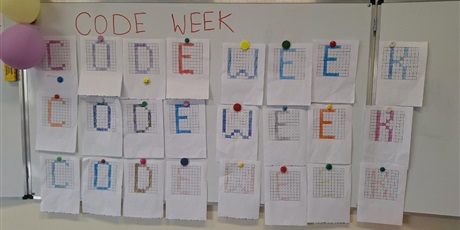 CODE WEEK
CODE WEEK
CODE WEEK
CODE WEEK